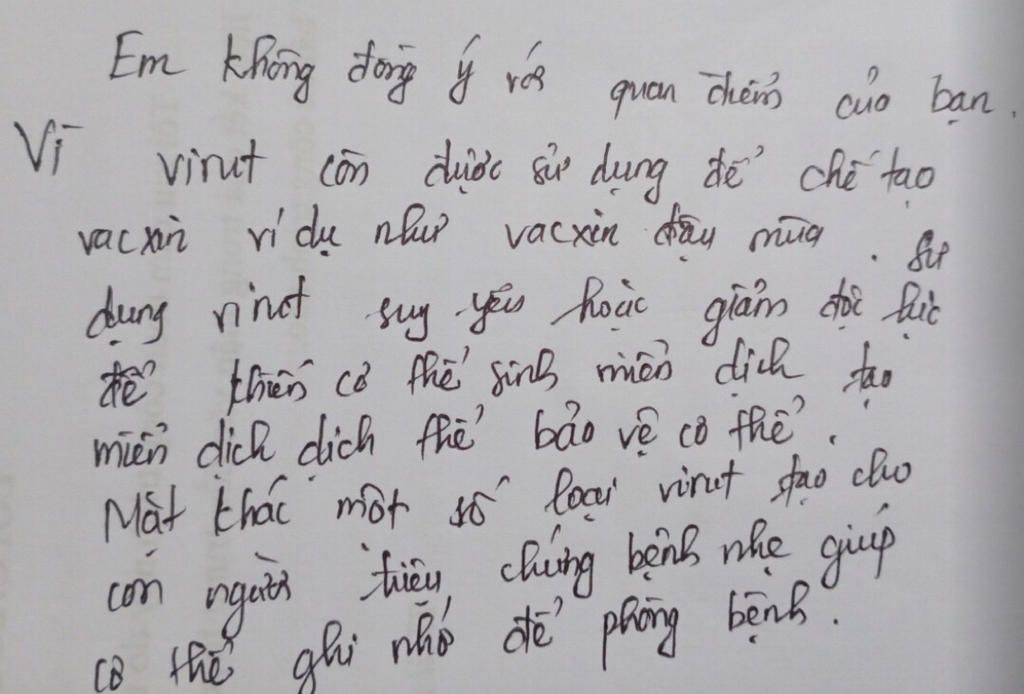 Em không đồng ý với quan điểm của bạn.
Vì virut còn được sử dụng để chế tạo
vacxin ví dụ như vacxin đậu mùa. Sử
dụng virut suy yếu hoặc giảm độc lực
để khiến cơ thể sinh miễn dịch tạo
miễn dịch dịch thể bảo vệ cơ thể.
Mặt khác một số loại virut tạo cho
con người triệu chứng bệnh nhẹ giúp
cơ thể ghi nhớ để phòng bệnh.